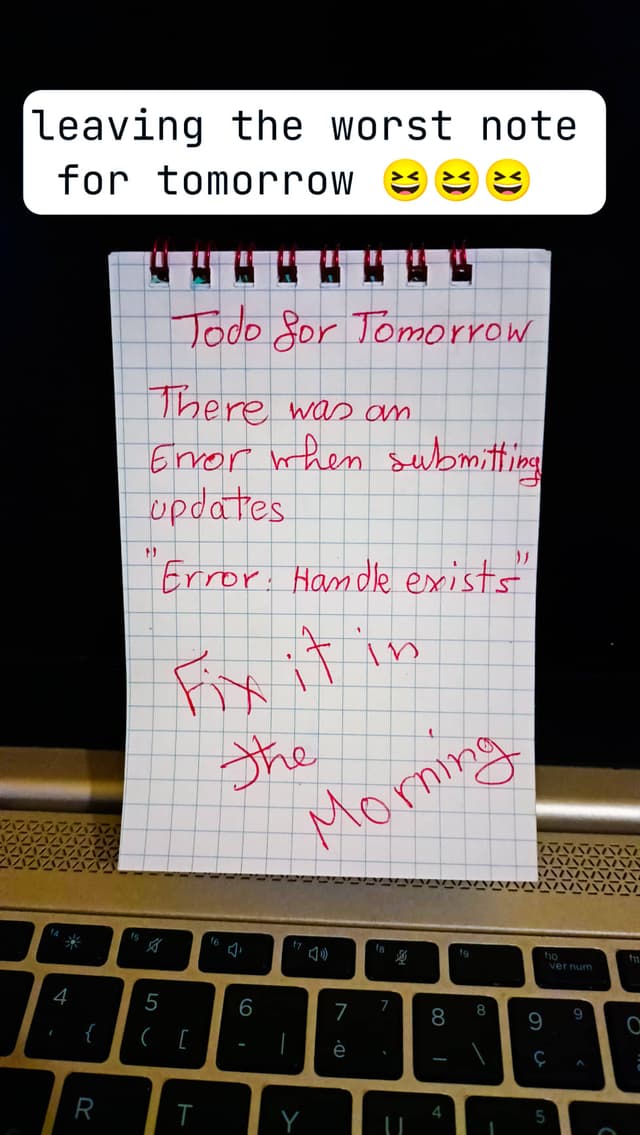 leaving the worst note
for tomorrow 😆😆😆
Todo for Tomorrow
There was an
Error when submitting
updates
"Error: Handle exists"
Fix it in
the
Morning
f4 f5 f6 f7 f8 f9 f10 ver num f11
4 ' { 5 ( [ 6 - | 7 è ` 7 8 _ \ 8 9 ç ^ 9
R T Y U 4 5